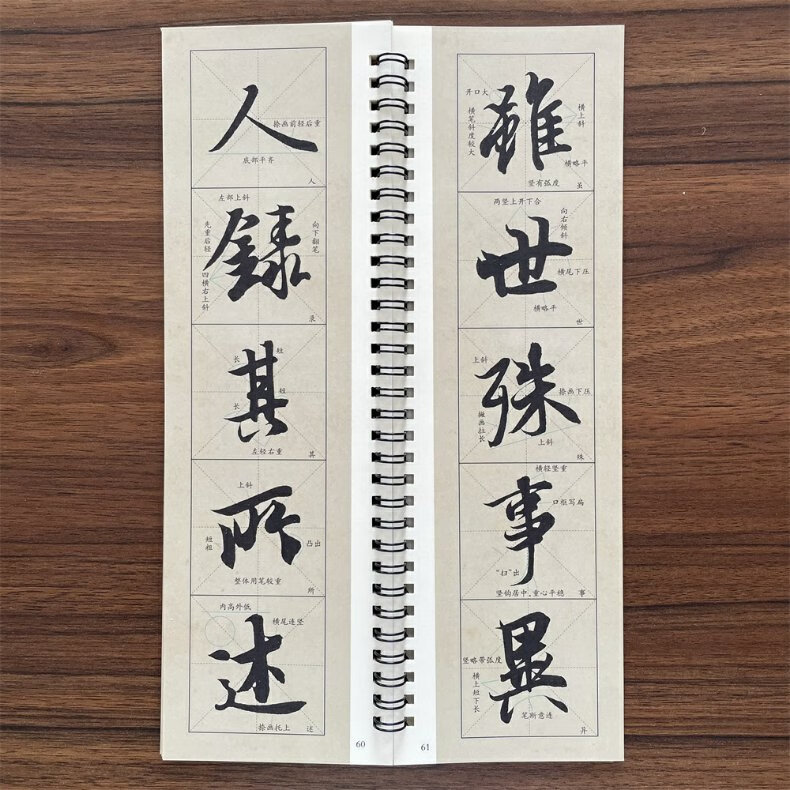 人
捺画前轻后重
底部平齐
人
左部上斜
先重后轻
向下翻笔
四横右上斜
録
录
长
短
其
短
长
左轻右重
其
上斜
所
短粗
凸出
整体用笔较重
所
内高外低
横尾连竖
述
捺画托上
述
60
开口大
横笔斜度较大
雖
横上斜
横略平
竖有弧度
虽
两竖上开下合
向右倾斜
世
横尾下压
横略平
世
上斜
殊
捺画下压
撇画拉长
上斜
殊
横轻竖重
事
口框写扁
“扫”出
竖钩居中，重心平稳
事
異
竖略带弧度
横上短下长
笔断意连
异
61